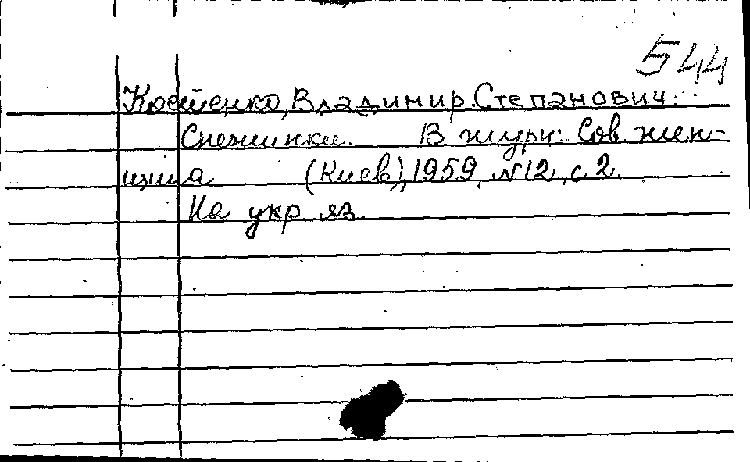 544
Костенко, Владимир Степанович.
Снежинки. В журн: Сов. жен-
щина (Киев), 1959, №12, с. 2.
На укр яз.